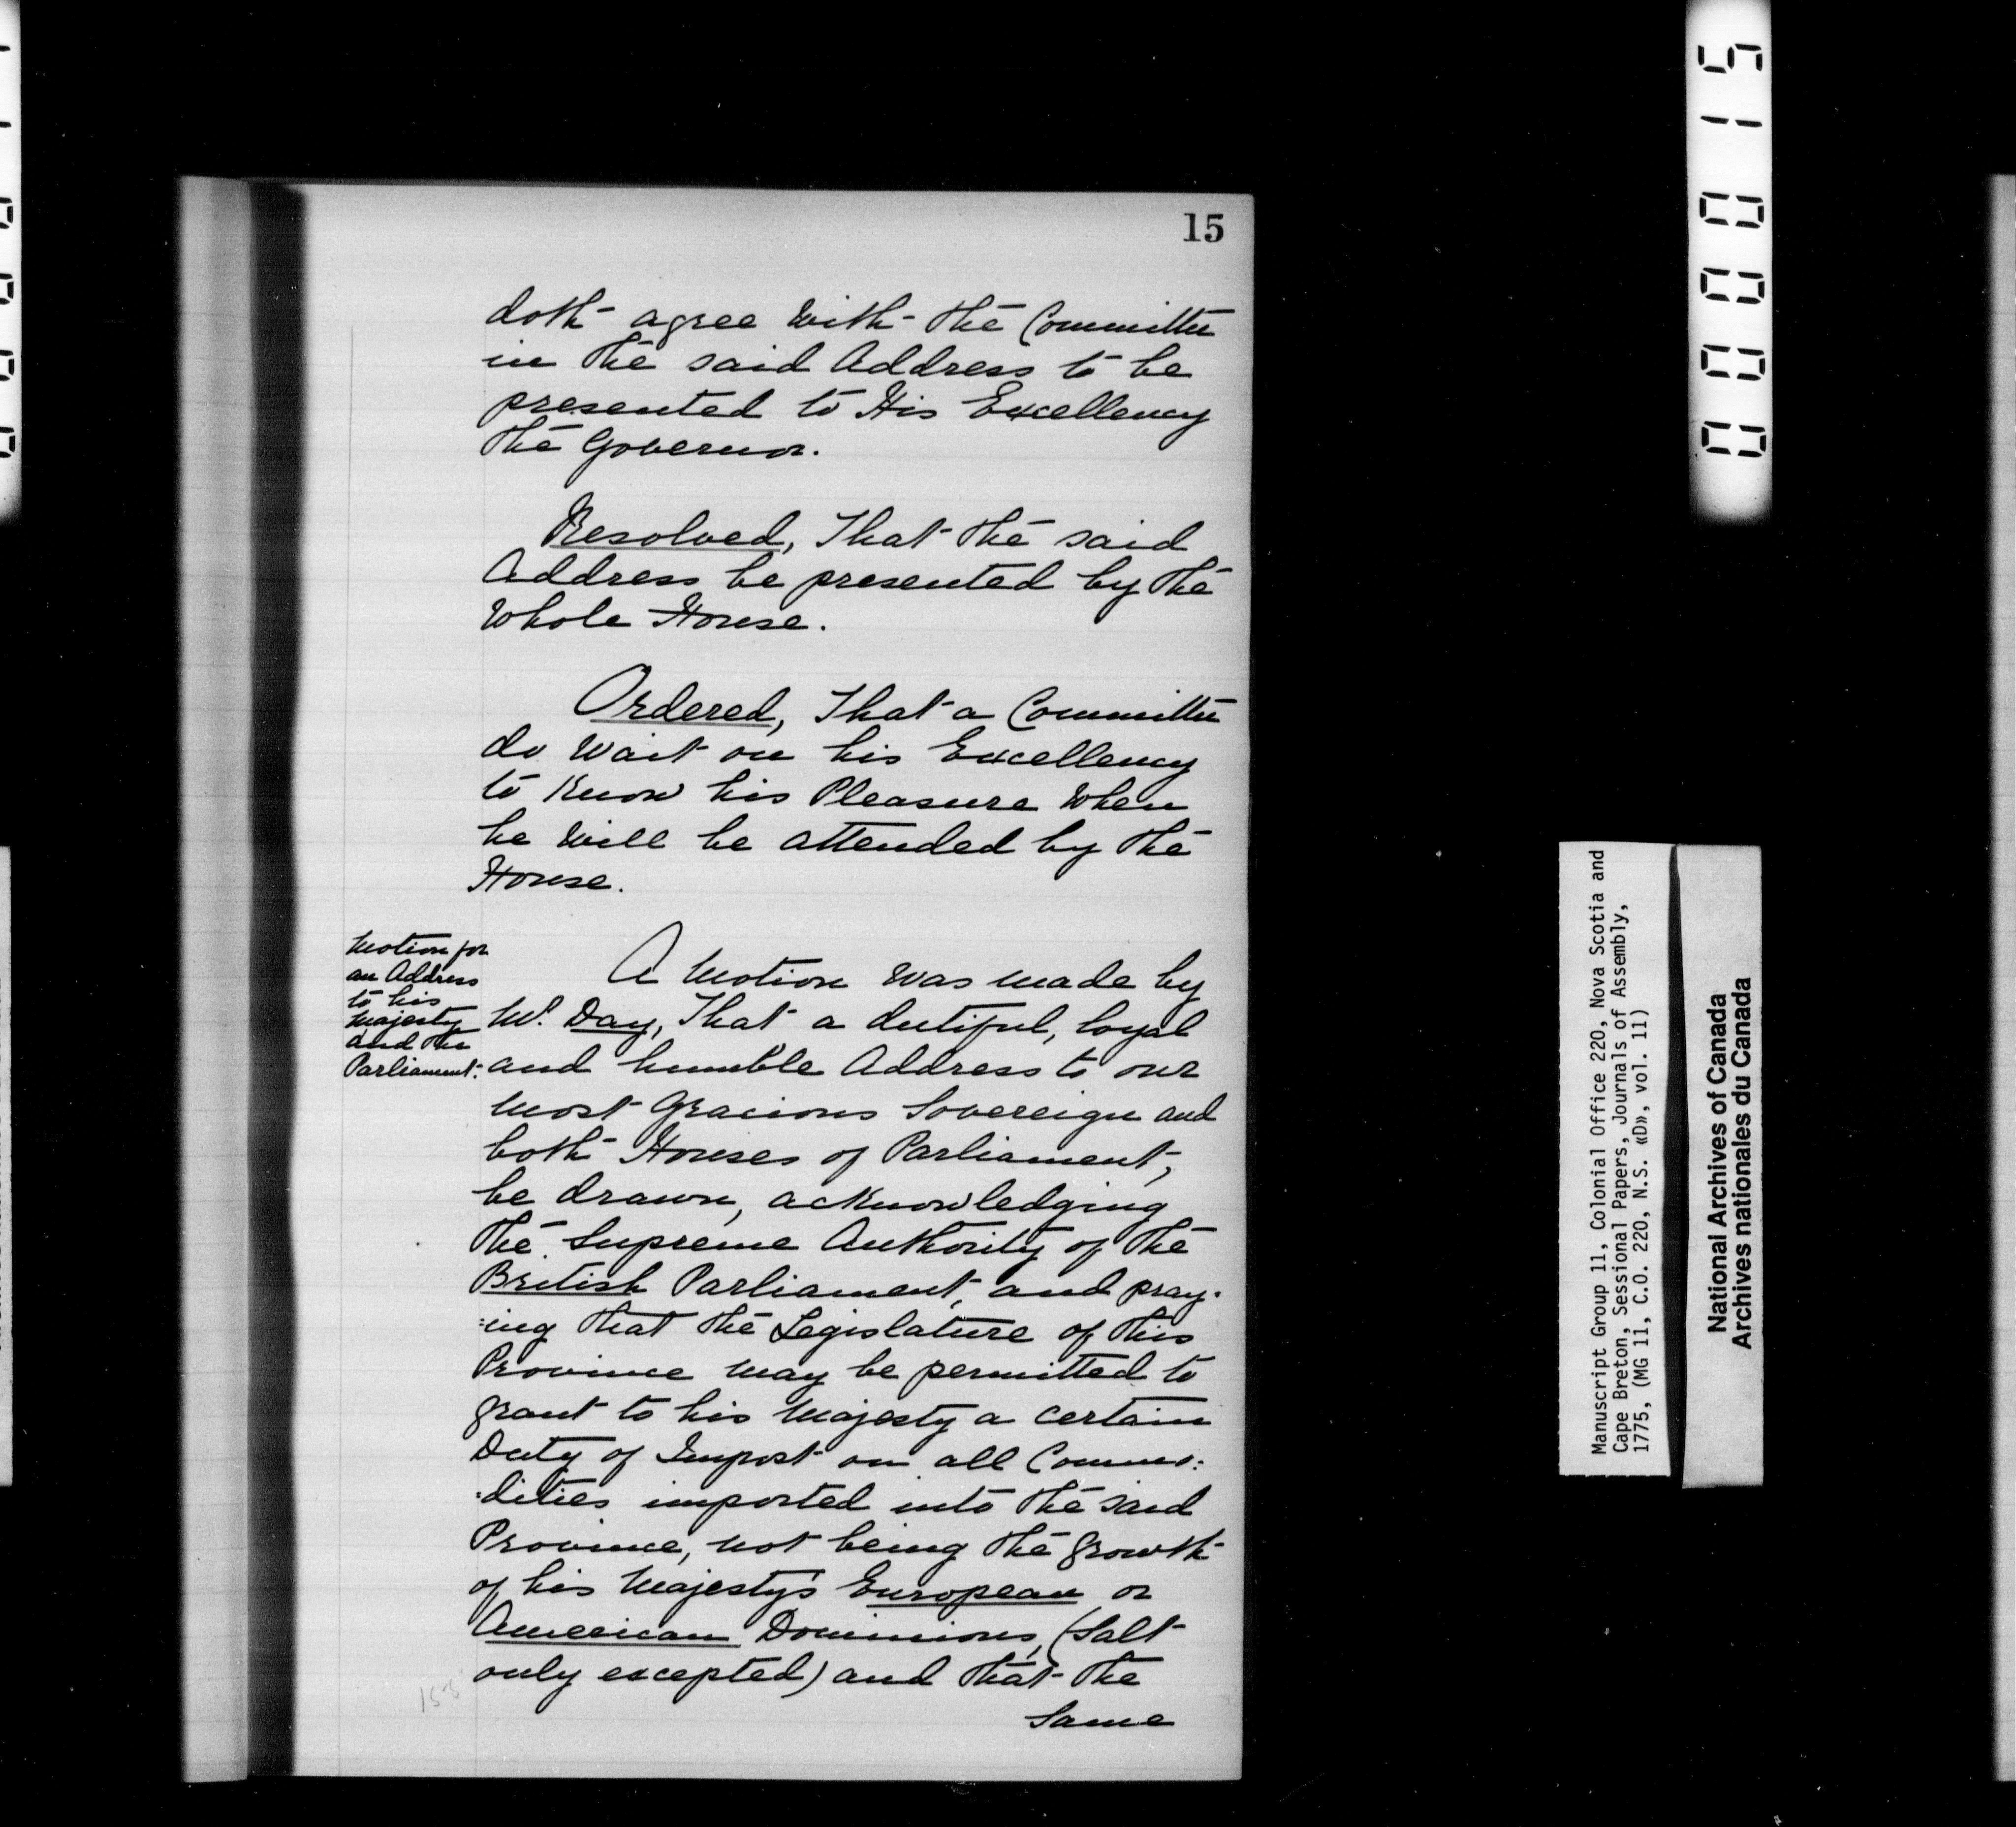 15
doth agree with the Committee
in the said Address to be
presented to His Excellency
the Governor.
Resolved, That the said
Address be presented by the
Whole House.
Ordered, That a Committee
do Wait on his Excellency
to Know his Pleasure When
he Will be attended by the
House.
Motion for
an Address
to his
Majesty
and the
Parliament.
A Motion was made by
Mr. Day, That a dutiful, loyal
and humble Address to our
Most Gracious Sovereign and
both Houses of Parliament,
be drawn, acknowledging
the Supreme Authority of the
British Parliament, and pray-
:ing that the Legislature of this
Province may be permitted to
grant to his Majesty a certain
Duty of Impost on all Commo:
:dities imported into the said
Province, not being the Growth
of his Majesty's European or
American Dominions, (Salt
only excepted) and that the
Same
000015
Manuscript Group 11, Colonial Office 220, Nova Scotia and
Cape Breton, Sessional Papers, Journals of Assembly,
1775, (MG 11, C.O. 220, N.S. «D», vol. 11)
National Archives of Canada
Archives nationales du Canada